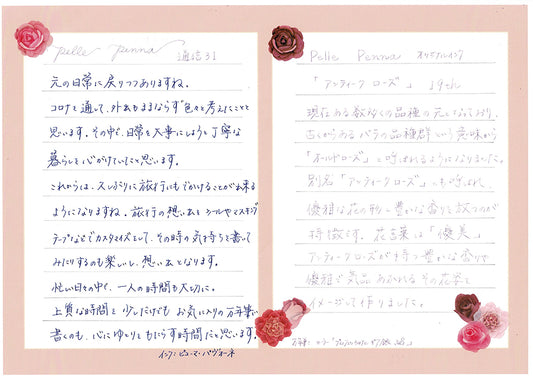 pelle penna 通信31
元の日常に戻りつつありますね。
コロナを通して、外出もままならず色々と考えたことと
思います。その中で、日常を大事にしようと丁寧な
暮らしを心がけていたことと思います。
これからは、久しぶりに旅行にもでかけることが出来る
ようになりますね。旅行の想い出を シールやマスキング
テープなどでカスタマイズして、その時の気持ちを書いて
みたりするのも楽しい、想い出となります。
忙しい日々の中で、一人の時間も大切に。
上質な時間を 少しだけでも お気に入りの万年筆で
書くのも、心にゆとりをもたらす時間だと思います。
インク:ピューマ・パヴォーネ
Pelle Penna オリジナルインク
「アンティークローズ」 19th
現在ある数多くの品種の元となっており、
古くからあるバラの品種群という意味から
「オールドローズ」と呼ばれるようになりました。
別名「アンティークローズ」とも呼ばれ
優雅な花の形と豊かな香りを放つのが
特徴です。花言葉は「優美」
アンティークローズが持つ豊かな香りや
優雅で気品あふれるその花姿を
イメージして作りました。
万年筆: